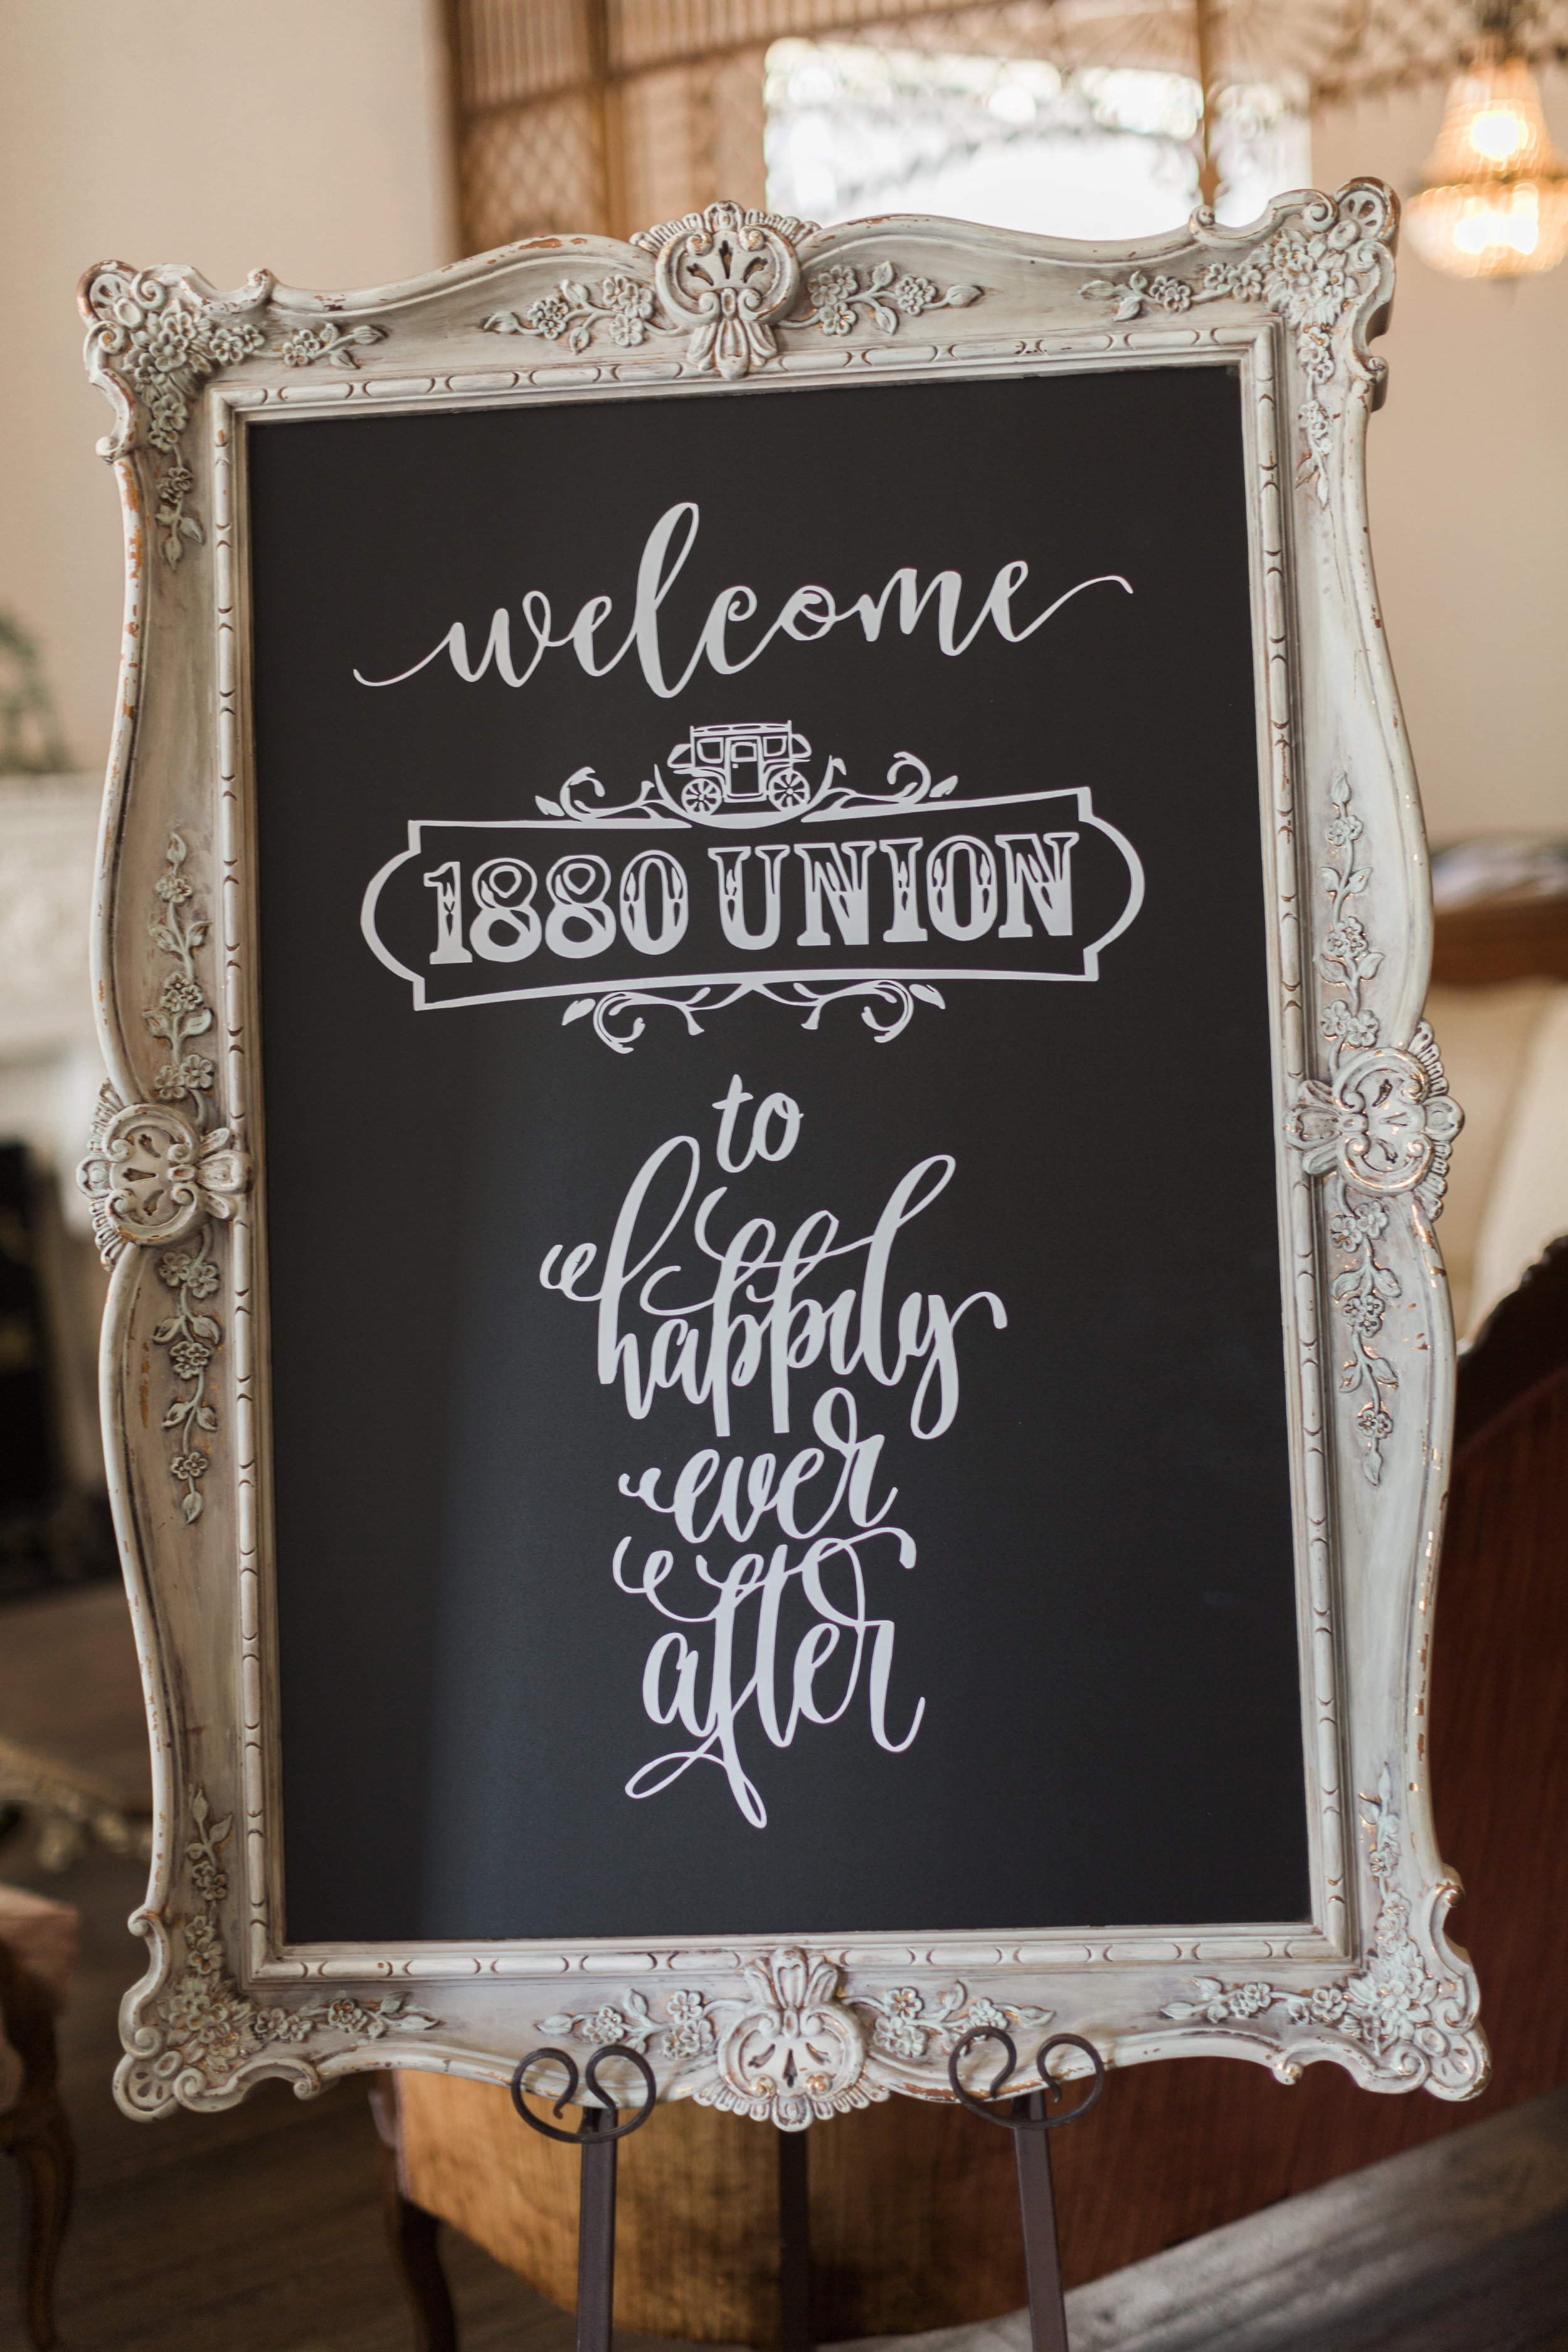 welcome
1880 UNION
to
happily
ever
after